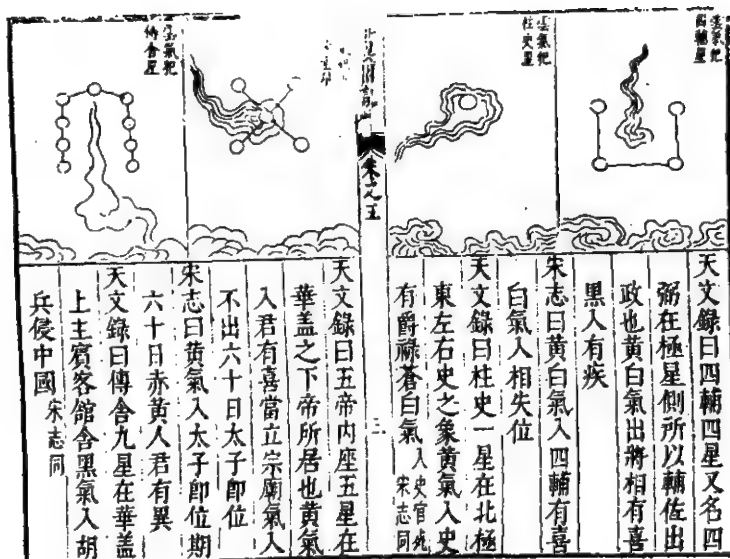 雲氣犯
四輔星
天文錄曰四輔四星又名四
弼在極星側所以輔佐出
政也黃白氣出將相有喜
黑入有疾
宋志曰黃白氣入四輔有喜
白氣入相失位
雲氣犯
柱史星
天文錄曰柱史一星在北極
東左右史之象黃氣入史
有爵祿蒼白氣入史官死
宋志同
三
天文錄曰五帝內座五星在
華蓋之下帝所居也黃氣
入君有喜當立宗廟氣入
不出六十日太子即位
宋志曰黃氣入太子即位期
六十日赤黃人君有異
雲氣犯
傳舍星
天文錄曰傳舍九星在華蓋
上主賓客館舍黑氣入胡
兵侵中國宋志同